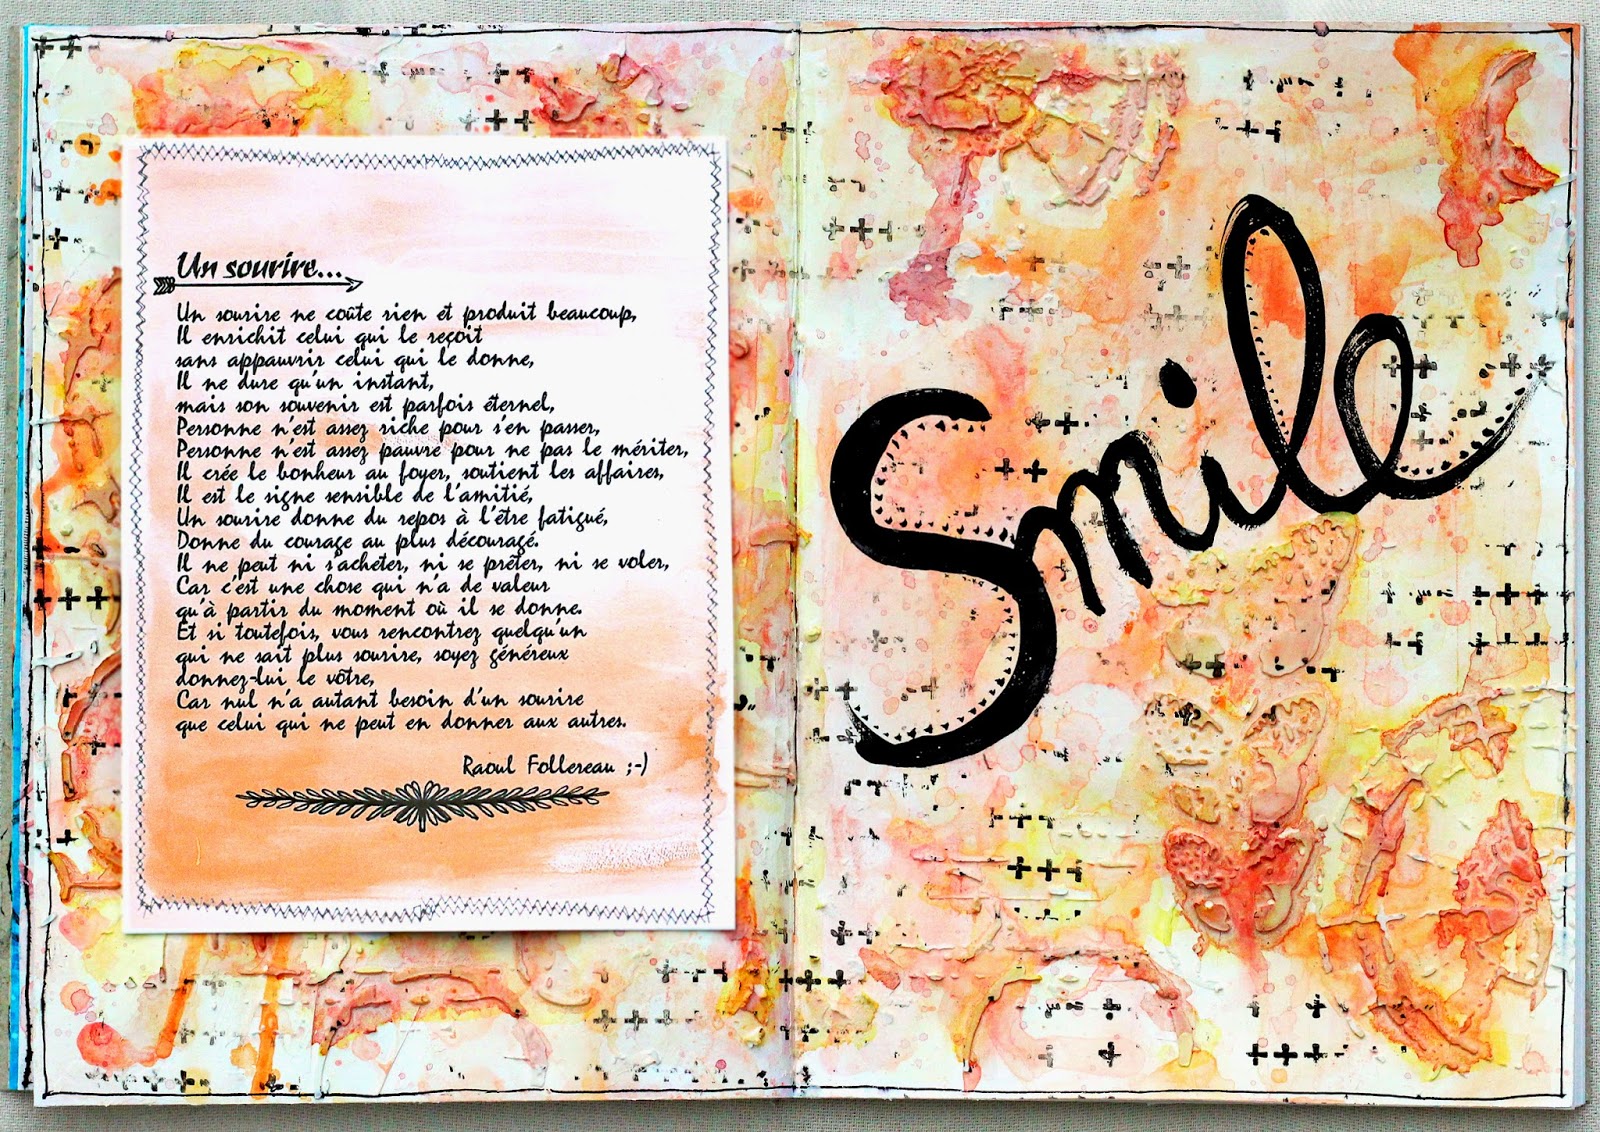 Un sourire...
Un sourire ne coûte rien et produit beaucoup,
Il enrichit celui qui le reçoit
sans appauvrir celui qui le donne,
Il ne dure qu'un instant,
mais son souvenir est parfois éternel,
Personne n'est assez riche pour s'en passer,
Personne n'est assez pauvre pour ne pas le mériter,
Il crée le bonheur au foyer, soutient les affaires,
Il est le signe sensible de l'amitié,
Un sourire donne du repos à l'être fatigué,
Donne du courage au plus découragé.
Il ne peut ni s'acheter, ni se prêter, ni se voler,
Car c'est une chose qui n'a de valeur
qu'à partir du moment où il se donne.
Et si toutefois, vous rencontrez quelqu'un
qui ne sait plus sourire, soyez généreux
donnez-lui le vôtre,
Car nul n'a autant besoin d'un sourire
que celui qui ne peut en donner aux autres.
Raoul Follereau ;-)
Smile